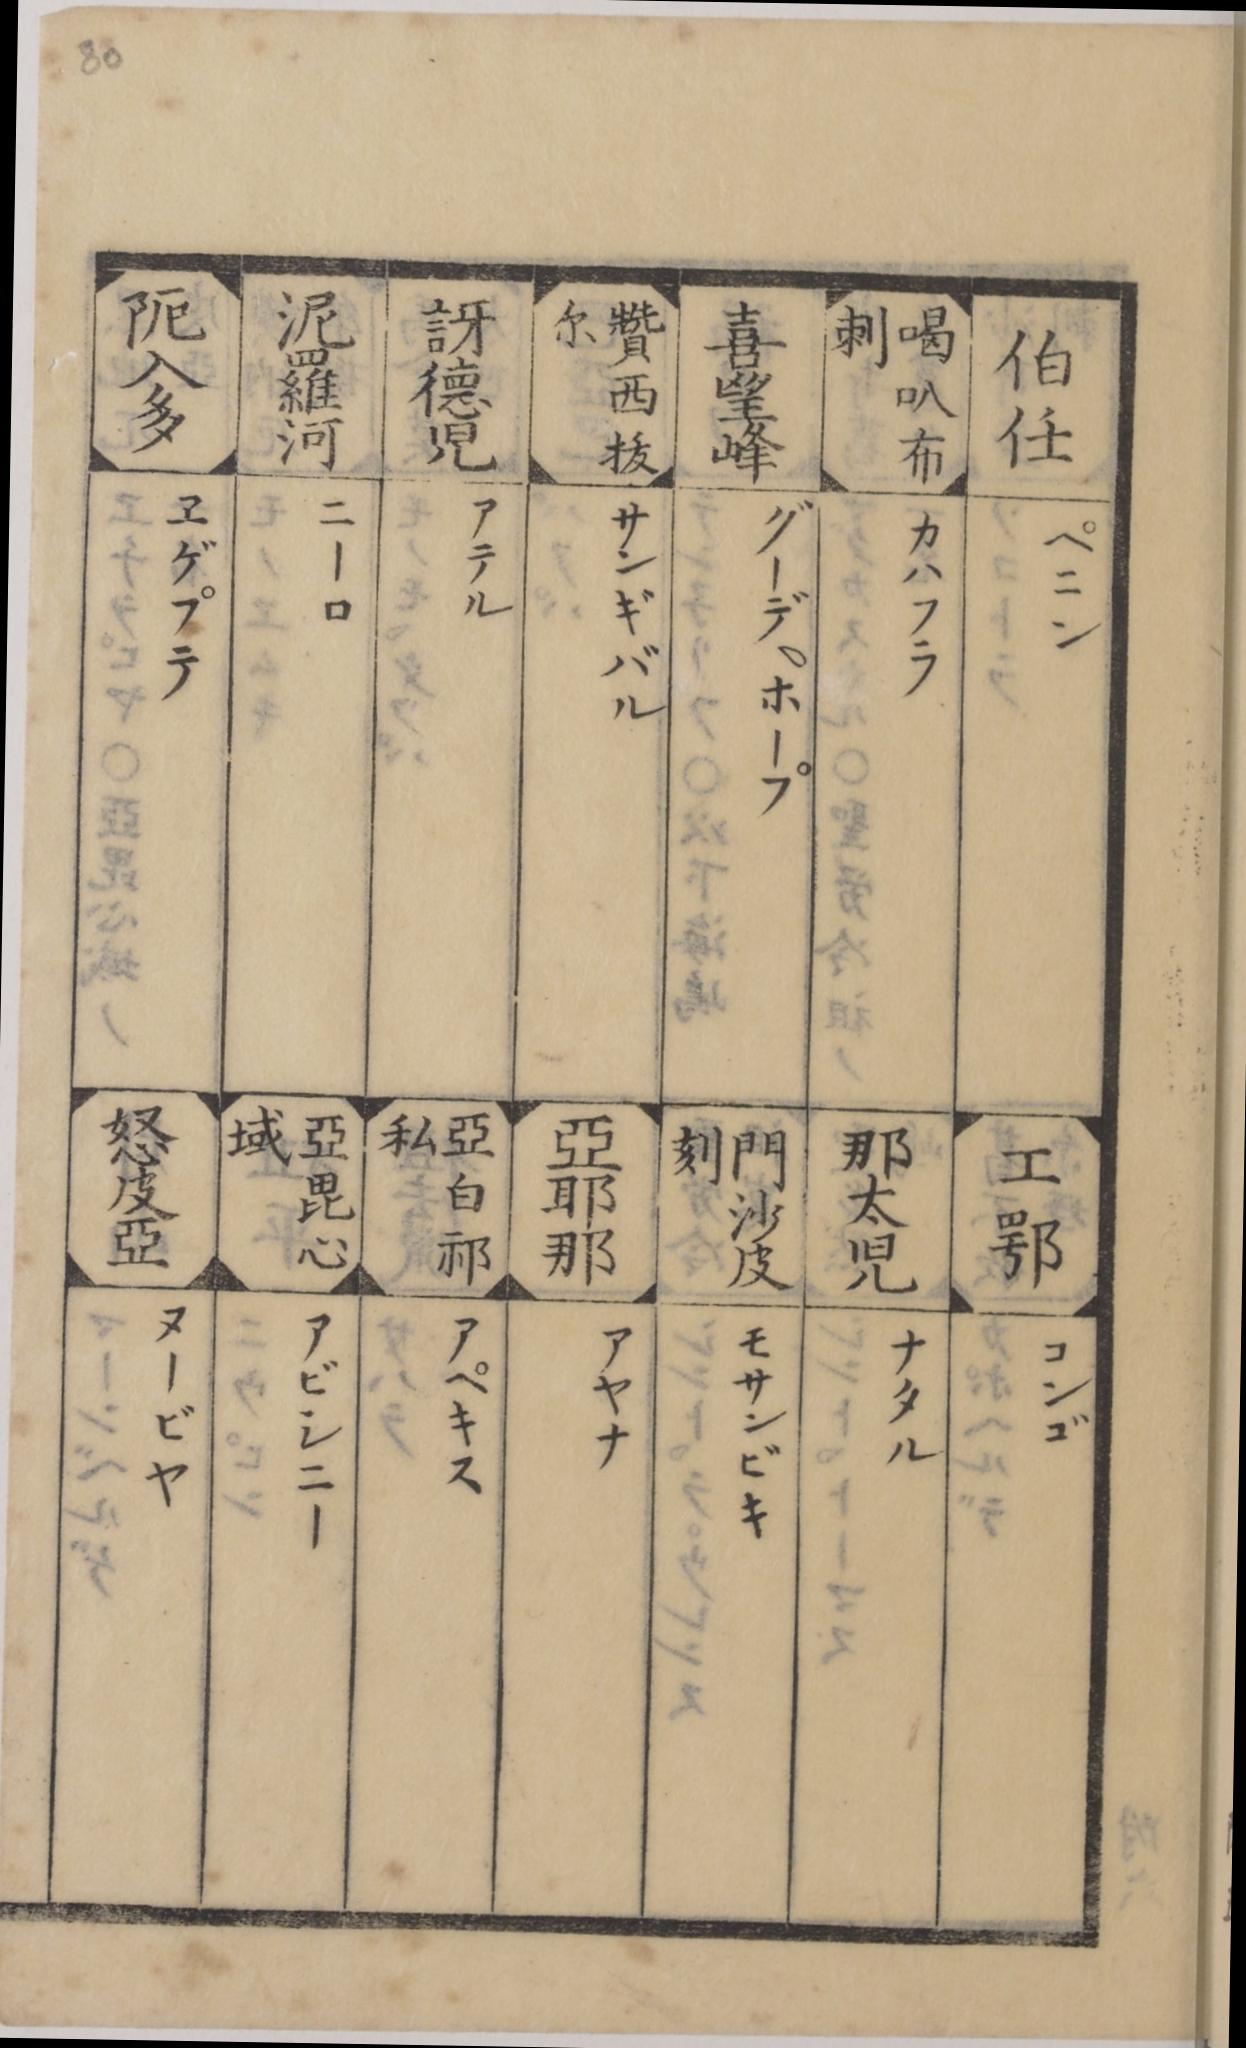 80
伯任
ペニン
工鄂
コンゴ
喝叭布刺
カハフラ
那太児
ナタル
喜望峰
グーデ。ホープ
門沙皮刻
モサンビキ
贊西抜尓
サンギバル
亞耶那
アヤナ
訝德児
アテル
亞白祁私
アペキス
泥羅河
ニーロ
亞毘心域
アビシニー
阨入多
ヱゲプテ
怒皮亞
ヌービヤ